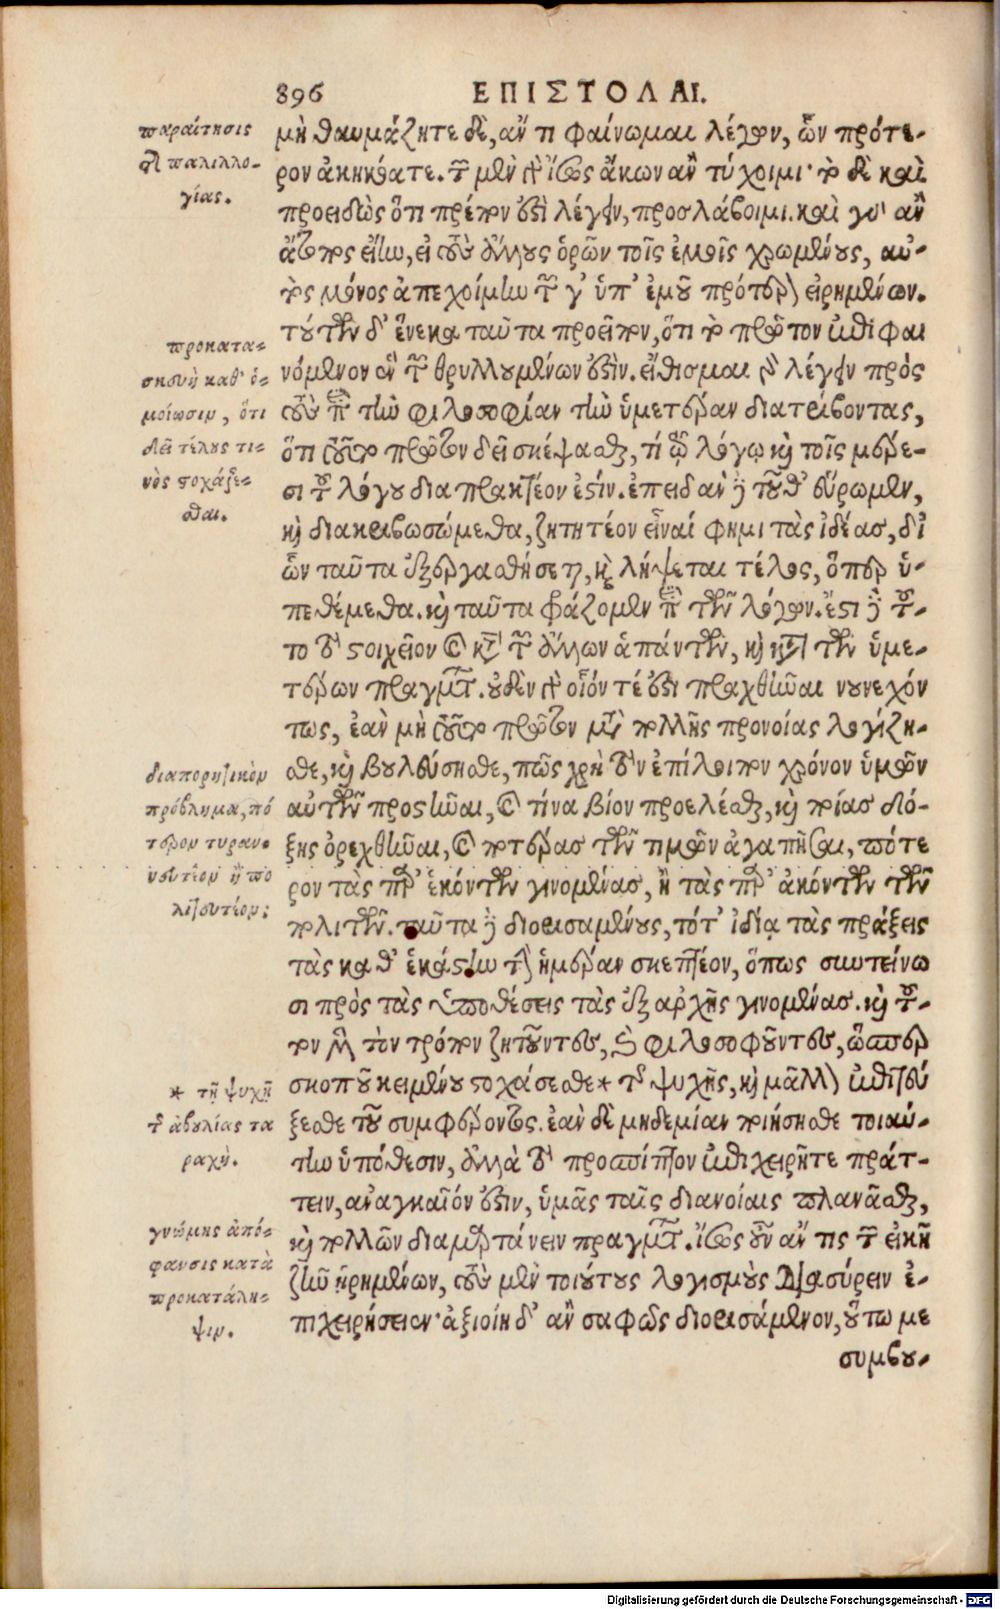 896 ΕΠΙΣΤΟΛΑΙ.
μὴ θαυμάζητε δὲ, ἄν τι φαίνωμαι λέγων, ὧν πρότε-
ρον ἀκηκόατε. τῷ μὲν γὰρ ἴσως ἄκων ἂν τύχοιμι· τὸ δὲ καὶ
προειδὼς ὅτι πρέπον ἐστὶ λέγειν, προσλάβοιμι. καὶ γὰρ ἂν
ἄτοπος εἴην, εἰ τοὺς ἄλλους ὁρῶν τοῖς ἐμοῖς χρωμένους, αὐ-
τὸς μόνος ἀπεχοίμην τῶν γ' ὑπ' ἐμοῦ πρότερον εἰρημένων.
τούτων δ' ἕνεκα ταῦτα προεῖπον, ὅτι τὸ πρῶτον ἐπιφαι
νόμενον ἓν τῶν θρυλλουμένων ἐστίν. εἴθισμαι γὰρ λέγειν πρὸς
τοὺς περὶ τὴν φιλοσοφίαν τὴν ὑμετέραν διατρίβοντας,
ὅτι τοῦτο πρῶτον δεῖ σκέψασθαι, τί τῷ λόγῳ καὶ τοῖς μέρε-
σι τοῦ λόγου διαπρακτέον ἐστίν. ἐπειδὰν δὲ τοῦθ' εὕρωμεν,
καὶ διακριβωσώμεθα, ζητητέον εἶναί φημι τὰς ἰδέας, δι'
ὧν ταῦτα ἐξεργασθήσεται, καὶ λήψεται τέλος, ὅπερ ὑ-
πεθέμεθα. καὶ ταῦτα φράζομεν περὶ τῶν λόγων. ἔστι δὲ τοῦ-
το τὸ στοιχεῖον καὶ κατὰ τῶν ἄλλων ἁπάντων, καὶ κατὰ τῶν ὑμε-
τέρων πραγμάτων. οὐδὲν γὰρ οἷόν τέ ἐστι πραχθῆναι νουνεχόν
τως, ἐὰν μὴ τοῦτο πρῶτον μετὰ πολλῆς προνοίας λογίζη-
σθε, καὶ βουλεύσησθε, πῶς χρὴ τὸν ἐπίλοιπον χρόνον ὑμῶν
αὐτῶν προστῆναι, καὶ τίνα βίον προελέσθαι, καὶ ποίας δό-
ξης ὀρεχθῆναι, καὶ ποτέρας τῶν τιμῶν ἀγαπῆσαι, πότε
ρον τὰς παρ' ἑκόντων γινομένας, ἢ τὰς παρ' ἀκόντων τῶν
πολιτῶν. ταῦτα δὲ διορισαμένους, τότ' ἰδίᾳ τὰς πράξεις
τὰς καθ' ἑκάστην τὴν ἡμέραν σκεπτέον, ὅπως συντείνω
σι πρὸς τὰς ὑποθέσεις τὰς ἐξ ἀρχῆς γινομένας. καὶ τοῦ-
τον μὲν τὸν τρόπον ζητοῦντες, καὶ φιλοσοφοῦντες, ὥσπερ
σκοποῦ κειμένου στοχάσεσθε * τῆς ψυχῆς, καὶ μᾶλλον ἐπιτεύ
ξεσθε τοῦ συμφέροντος. ἐὰν δὲ μηδεμίαν ποιήσησθε τοιαύ-
την ὑπόθεσιν, ἀλλὰ τὸ προσπίπτον ἐπιχειρῆτε πράτ-
τειν, ἀναγκαῖόν ἐστιν, ὑμᾶς ταῖς διανοίαις πλανᾶσθαι,
καὶ πολλῶν διαμαρτάνειν πραγμάτων. ἴσως οὖν ἄν τις τῶν εἰκῆ
ζῆν ᾑρημένων, τοὺς μὲν τοιούτους λογισμοὺς διασύρειν ἐ-
πιχειρήσειεν· ἀξιοίη δ' ἂν σαφῶς διορισάμενον, οὕτω με
συμβου-
παραίτησις
τῆς παλιλλο-
γίας.
προκατα-
σκευὴ καθ' ὁ-
μοίωσιν, ὅτι
δεῖ τέλους τι-
νὸς στοχάζε-
σθαι.
διαπορητικὸν
πρόβλημα, πό
τερον τυραν-
νευτέον ἢ πο
λιτευτέον;
* τῇ ψυχῇ
τῆς ἀβουλίας τα
ραχὴ.
γνώμης ἀπό-
φανσις κατὰ
προκατάλη-
ψιν.
Digitalisierung gefördert durch die Deutsche Forschungsgemeinschaft - DFG